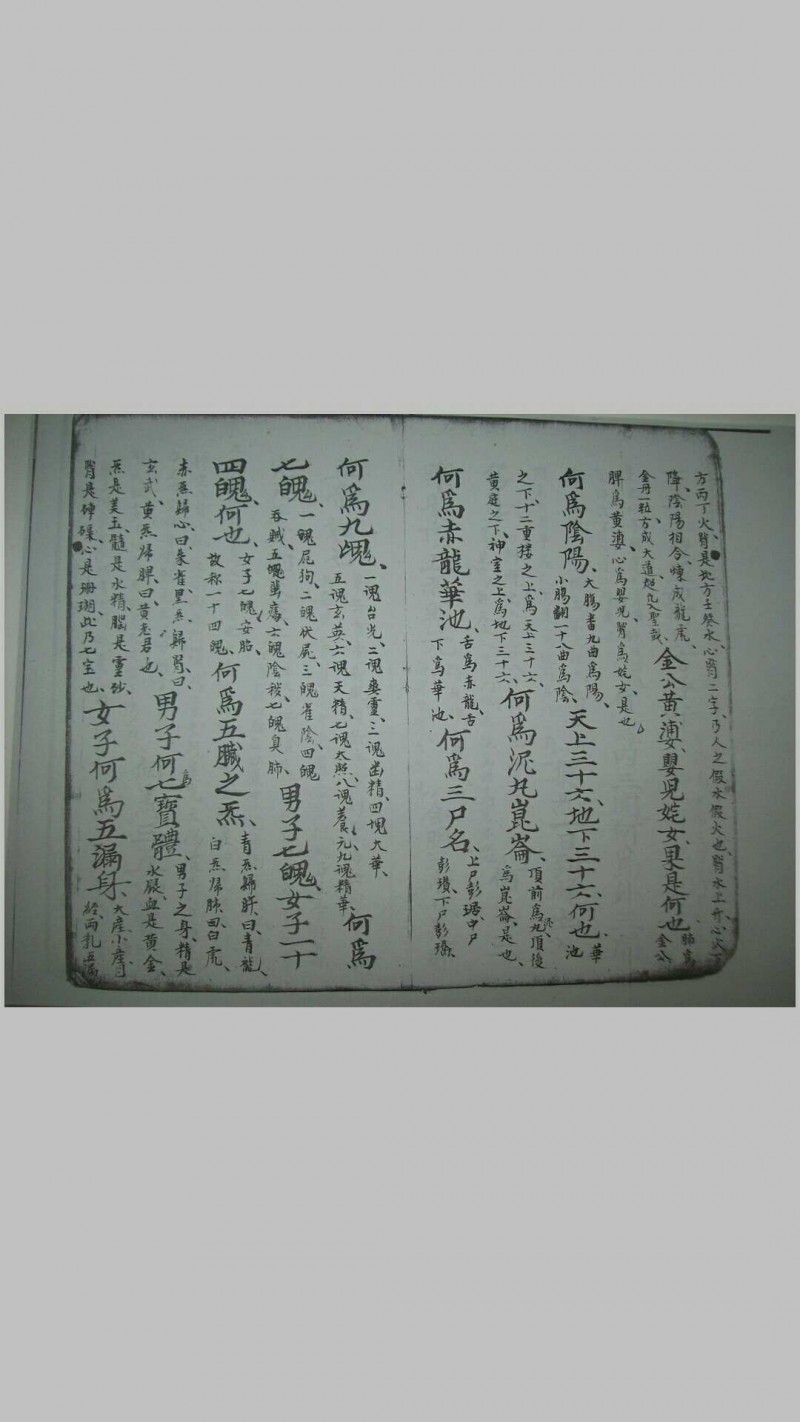 方丙丁火、腎是北方壬癸水、心腎二字、乃人之假水假火也、腎水上升、心火下
降、陰陽相合、煉成龍虎、
金丹一粒、方成大道、超凡入聖哉、
金公黃婆、嬰兒姹女、果是何也、
金公
脾為黃婆、心為嬰兒、腎為姹女是也、
何為陰陽、
大腸番九曲為陽、
小腸翻一十八曲為陰、
天上三十六、地下三十六、何也、
華
池
之下、十二重樓之上、為天上三十六、
黃庭之下、神室之上、為地下三十六、
何為泥丸崑崙、
頂前為泥丸、頂後
為崑崙是也、
何為赤龍華池、
舌為赤龍、舌
下為華池、
何為三尸名、
上尸彭琚、中尸
彭瓆、下尸彭瑀、
何為九魂、
一魂台光、二魂爽靈、三魂幽精、四魂太華、
五魂玄英、六魂天精、七魂太照、八魂養元、九魂精華、
何為
七魄、
一魄屍狗、二魄伏屍、三魄雀陰、四魄
吞賊、五魄蜚毒、六魄陰穢、七魄臭肺、
男子七魄、女子一十
四魄、何也、
女子七魄、安胎、
故称一十四魄、
何為五臟之炁、
青炁歸肝、曰青龍、
白炁歸肺、曰白虎、
赤炁歸心、曰朱雀、黑炁歸腎、曰
玄武、黃炁歸脾、曰黃老君也、
男子何為七寶體、
男子之身、精是
水銀、血是黃金、
炁是美玉、髓是水精、腦是靈砂、
腎是硨磲、心是珊瑚、此乃七宝也、
女子何為五漏身、
大産小産、月
經、両乳五漏